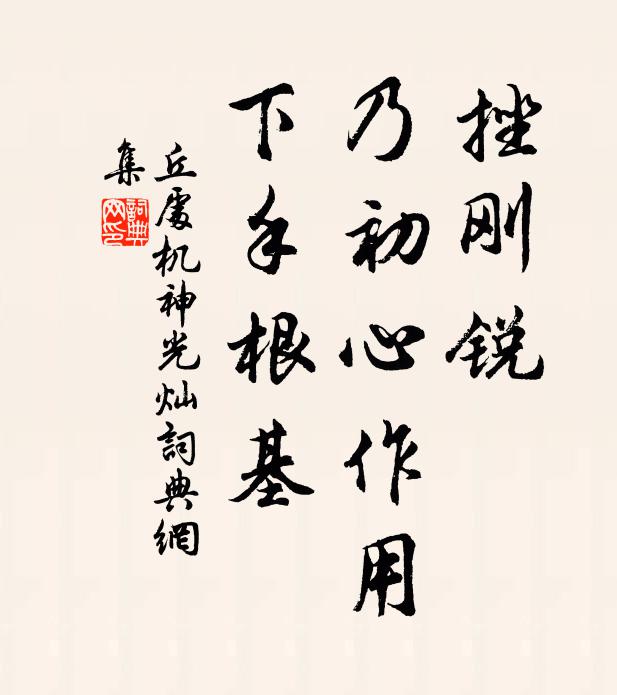 挫刚锐
乃初心作用
下手根基
丘處机神光灿詞典網
集
詞典
网印